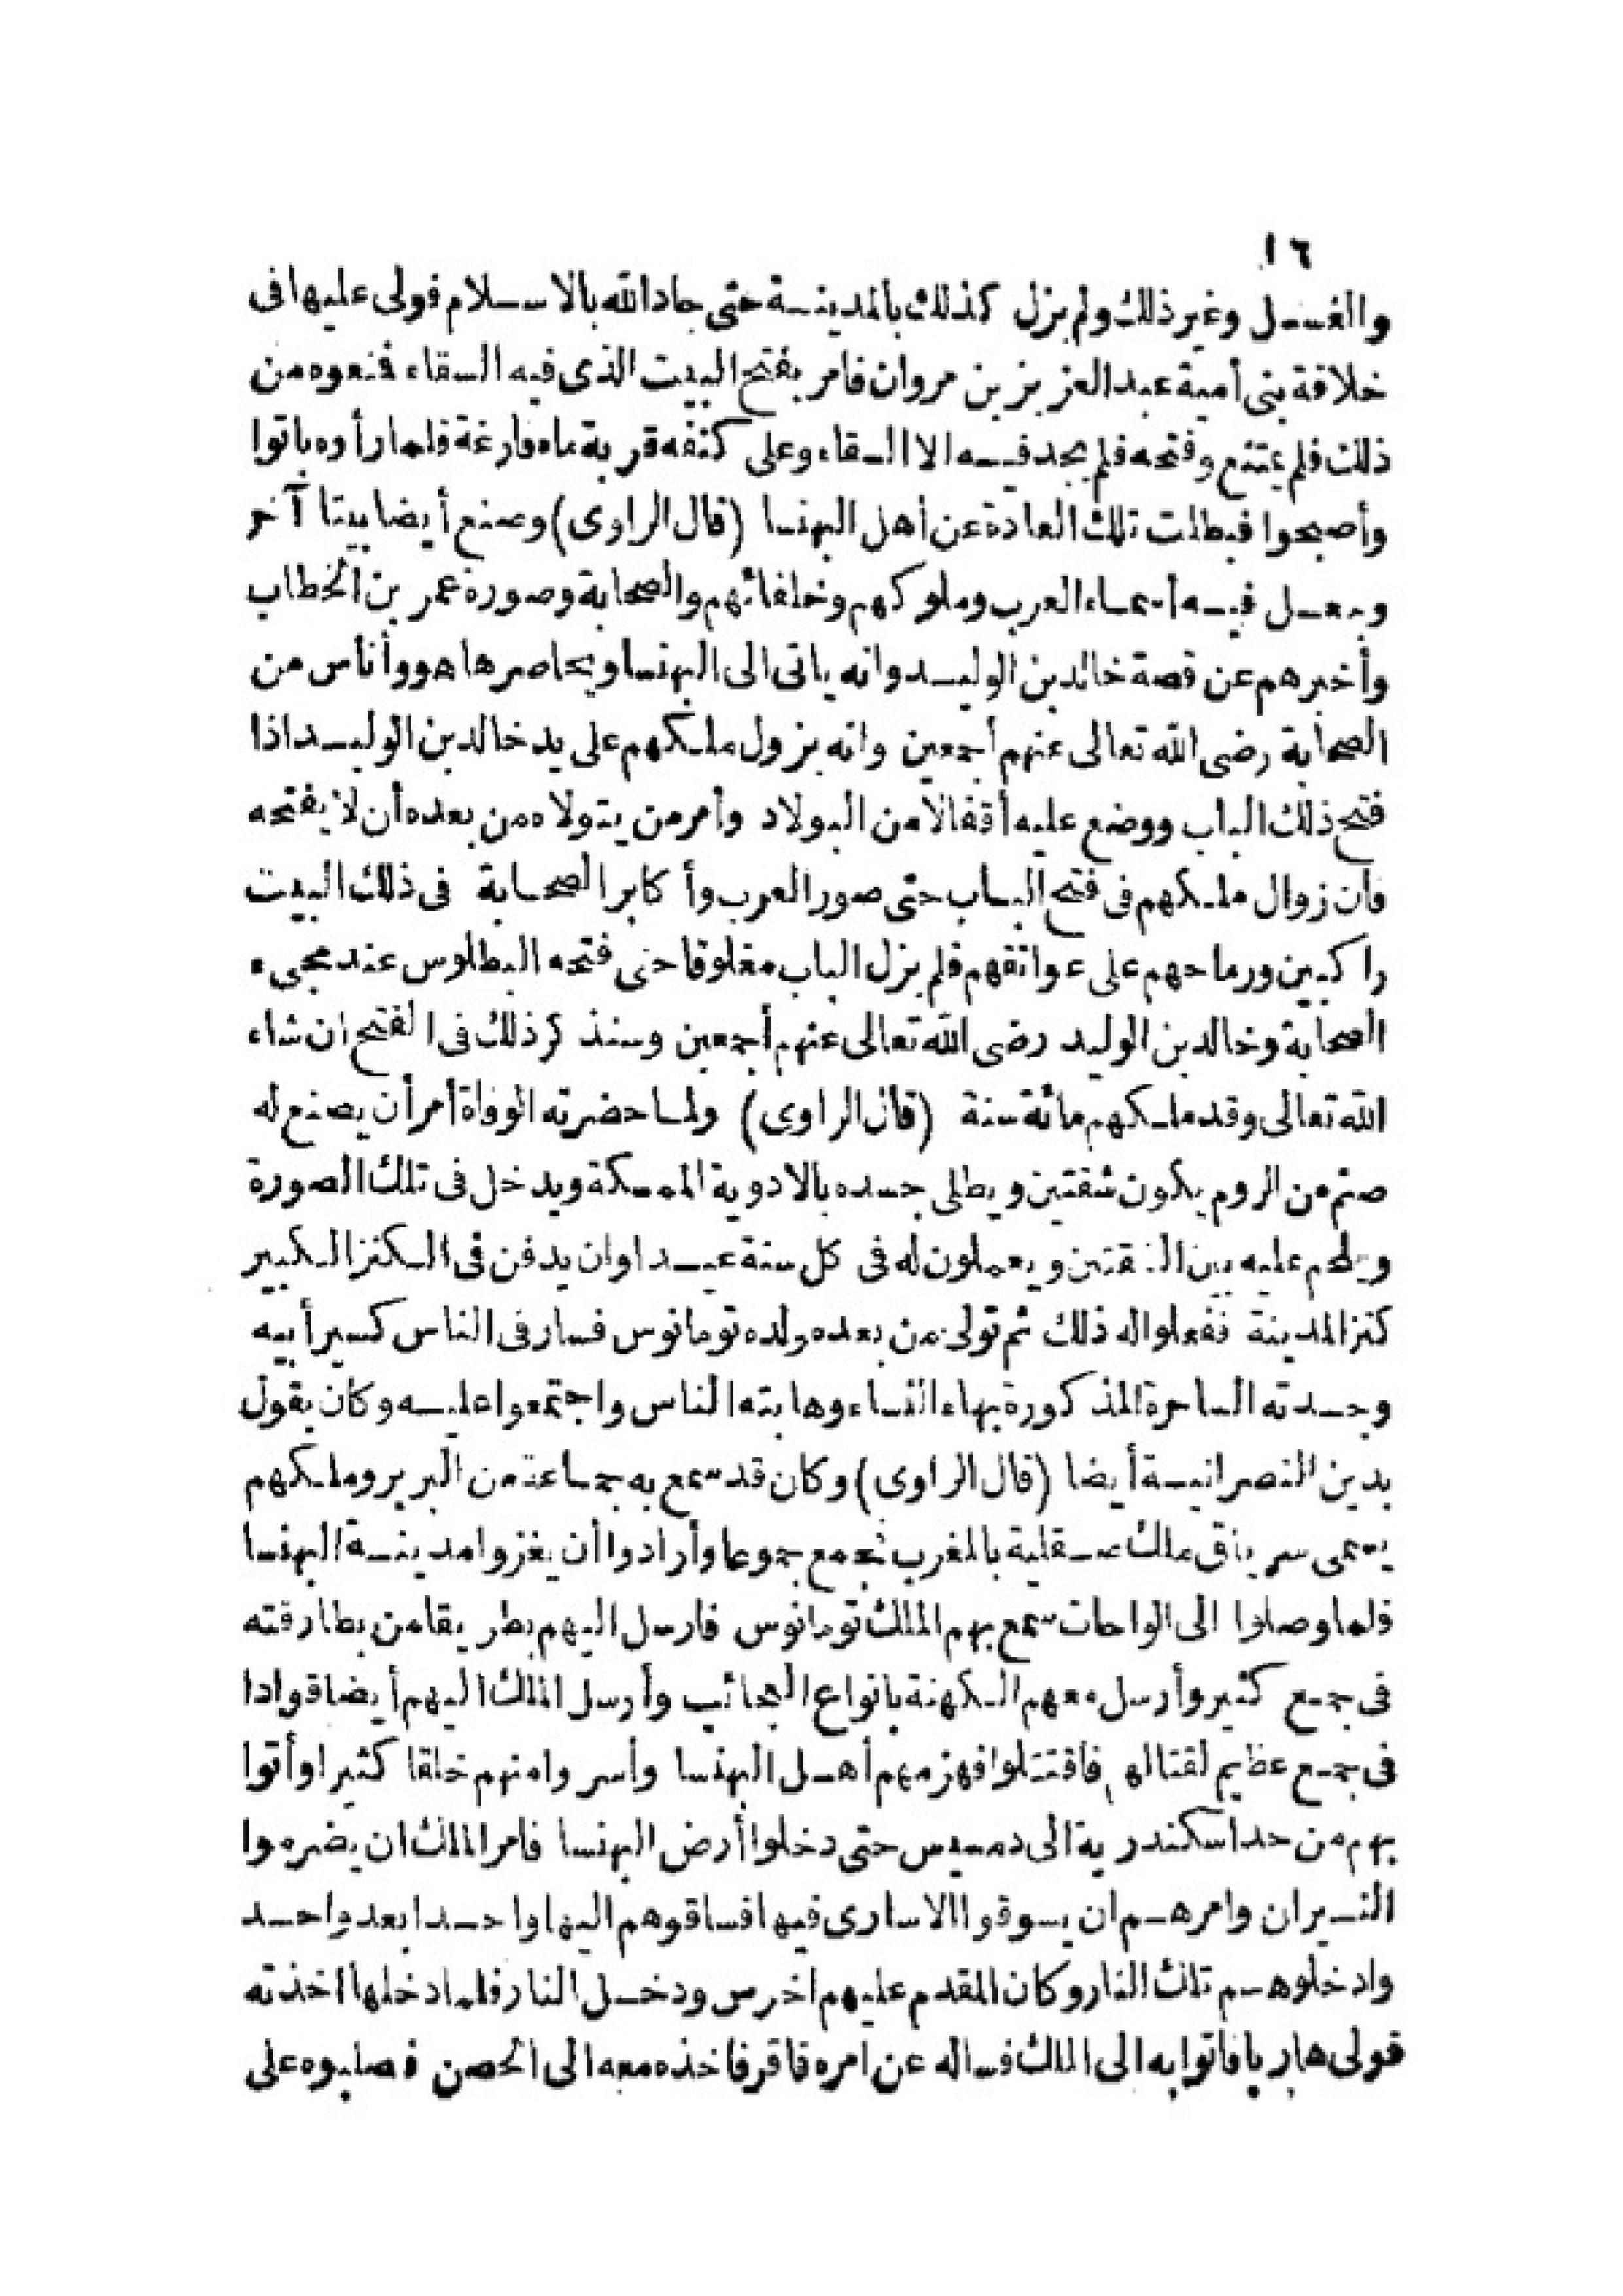 ١٦
والغسل وغير ذلك ولم يزل كذلك بالمدينة حتى جاد الله بالاسلام فولى عليها فى
خلافة بنى أمية عبد العزيز بن مروان فامر بفتح البيت الذى فيه السقاء فمنعوه من
ذلك فلم يمتنع وفتحه فلم يجد فيه الا السقاء وعلى كتفه قربة ماء فارغة فلما رأوه باتوا
وأصبحوا فبطلت تلك العادة عن أهل البهنسا (قال الراوى) وصنع أيضا بيتا آخر
وجعل فيه أسماء العرب وملوكهم وخلفائهم والصحابة وصورة عمر بن الخطاب
وأخبرهم عن قصة خالد بن الوليد وانه ياتى الى البهنسا ويحاصرها هو وأناس من
الصحابة رضى الله تعالى عنهم أجمعين وانه يزول ملكهم على يد خالد بن الوليد اذا
فتح ذلك الباب ووضع عليه أقفالا من البولاد وأمر من يتولاه من بعده أن لا يفتحه
فان زوال ملكهم فى فتح الباب حتى صور العرب وأكابر الصحابة فى ذلك البيت
راكبين ورماحهم على عواتقهم فلم يزل الباب مغلوقا حتى فتحه البطلوس عند مجىء
الصحابة وخالد بن الوليد رضى الله تعالى عنهم أجمعين وسنذكر ذلك فى الفتح ان شاء
الله تعالى وقد ملكهم مائة سنة (قال الراوى) ولما حضرته الوفاة أمر أن يصنع له
صنم من الروم يكون شقتين ويطلى جسده بالادوية الممسكة ويدخل فى تلك الصورة
ويلحم عليه بين الشقتين ويعملون له فى كل سنة عيدا وان يدفن فى الكنز الكبير
كنز المدينة ففعلوا له ذلك ثم تولى من بعده ولده تومانوس فسار فى الناس كسير أبيه
وجدته الساحرة المذكورة بهاء النساء وهابته الناس واجتمعوا عليه وكان يقول
بدين النصرانية أيضا (قال الراوى) وكان قد سمع به جماعة من البربر وملكهم
يسمى سرياق ملك صقلية بالمغرب فجمع جموعا وأرادوا أن يغزوا مدينة البهنسا
فلما وصلوا الى الواحات سمع بهم الملك تومانوس فارسل اليهم بطريقا من بطارقته
فى جمع كثير وأرسل معهم الكهنة بانواع العجائب وأرسل الملك اليهم أيضا قوادا
فى جمع عظيم لقتالهم فاقتتلوا فهزمهم أهل البهنسا وأسروا منهم خلقا كثيرا وأتوا
بهم من حد اسكندرية الى دمسيس حتى دخلوا أرض البهنسا فامر الملك ان يضرموا
النيران وامرهم ان يسوقوا الاسارى فيها فساقوهم اليها واحدا بعد واحد
وادخلوهم تلك النار وكان المقدم عليهم اخرس ودخل النار فلما دخلها اخذته
فولى هاربا فاتوا به الى الملك فساله عن امره فاقر فاخذه معه الى الحصن فصلبوه على